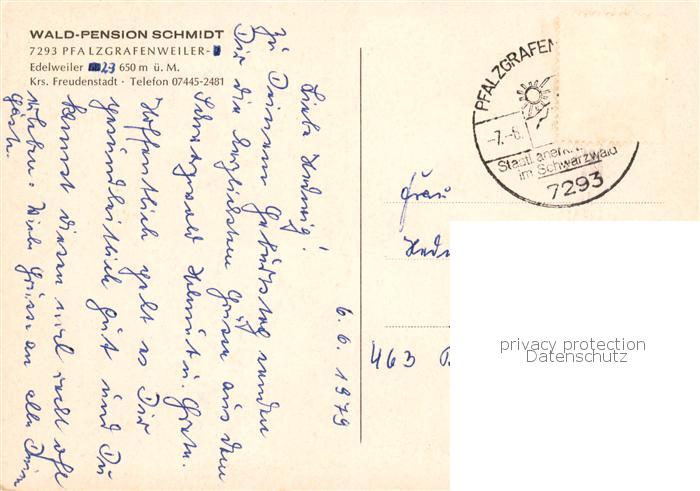 WALD-PENSION SCHMIDT
7293 PFALZGRAFENWEILER-
Edelweiler 23 650 m ü. M.
Krs. Freudenstadt · Telefon 07445-2481
6.6.1979
Liebe Hedwig!
Zu Deinem Geburtstag senden
Dir die herzlichsten Grüße aus dem
Schwarzwald Helmut u. Grete.
Hoffentlich geht es Dir
gesundheitlich gut und Du
kannst diesen noch recht oft
erleben. Viele Grüsse an alle Deine
Gäste.
PFALZGRAFEN
-7.-6.
Staatl. anerk.
im Schwarzwald
7293
Frau
463
privacy protection
Datenschutz